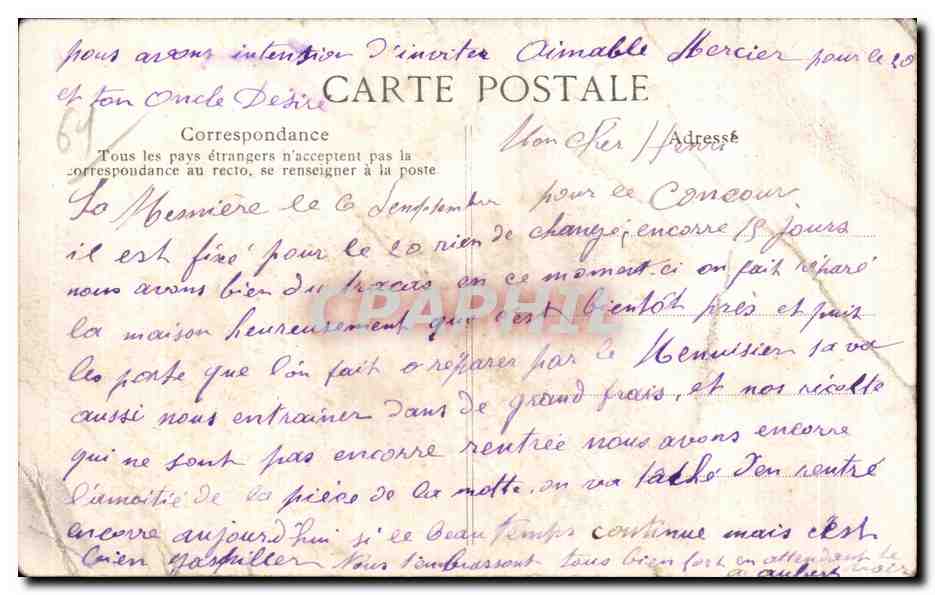 nous avons intension d'inviter Aimable Mercier pour le 20
et ton Oncle Désiré
CARTE POSTALE
64
Correspondance
Tous les pays étrangers n'acceptent pas la
correspondance au recto, se renseigner à la poste
Adresse
Mon cher Henri
La Mesnière le 6 Semptembre pour le Concour
il est fixé pour le 20 rien de changé, encorre 15 jours
nous avons bien du tracas en ce moment-ci on fait réparé
la maison heureusement que c'est bientôt près et puis
les porte que l'on fait a réparer par le Menuisier sa va
aussi nous entrainer dans de grand frais, et nos récolte
qui ne sont pas encorre rentrée nous avons encorre
l'amoitié de la pièce de la motte, on va taché d'en rentré
encorre aujourd'hui si le beau temps continue mais c'est
bien gaspiller Nous t'embrassont tous bien fort en attendant le
CPAPHIL